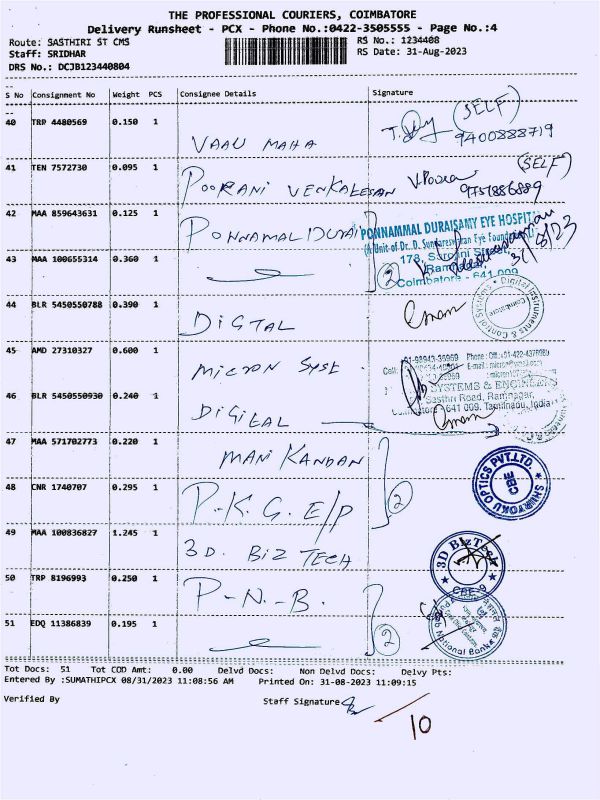 THE PROFESSIONAL COURIERS, COIMBATORE
Delivery Runsheet - PCX - Phone No.:0422-3505555 - Page No.:4
Route: SASTHIRI ST CMS
RS No.: 1234408
Staff: SRIDHAR
RS Date: 31-Aug-2023
DRS No.: DCJB123440804
S No Consignment No Weight PCS Consignee Details Signature
40 TRP 4480569 0.150 1
VAAU MAHA
(SELF)
9400888719
41 TEN 7572730 0.095 1
POORANI VENKATESAN
(SELF)
9751886889
42 MAA 859643631 0.125 1
PONNAMAL DURAI
PONNAMMAL DURAISAMY EYE HOSPITAL
(A Unit of Dr. D. Sundareswaran Eye Foundation)
178, Sarojini Street,
Ramnagar,
Coimbatore - 641 009
43 MAA 100655314 0.360 1
2
44 BLR 5450550788 0.390 1
DIGTAL
Digital Instruments & Control Systems
Coimbatore
45 AMD 27310327 0.600 1
MICRON SYSE
SYSTEMS & ENGINEERS
Sasthri Road, Ramnagar,
641 009. Tamilnadu, India
46 BLR 5450550930 0.240 1
DIGITAL
47 MAA 571702773 0.220 1
MANI KANDAN
48 CNR 1740707 0.295 1
P.K.G. E/P
2
OPTICS PVT.LTD.
CBE
49 MAA 100836827 1.245 1
3D. BIZ TECH
3D BizTech
CBE-9
50 TRP 8196993 0.250 1
P-N-B.
51 EDQ 11386839 0.195 1
2
National Bank
Tot Docs: 51 Tot COD Amt: 0.00 Delvd Docs: Non Delvd Docs: Delvy Pts:
Entered By :SUMATHIPCX 08/31/2023 11:08:56 AM Printed On: 31-08-2023 11:09:15
Verified By Staff Signature
10